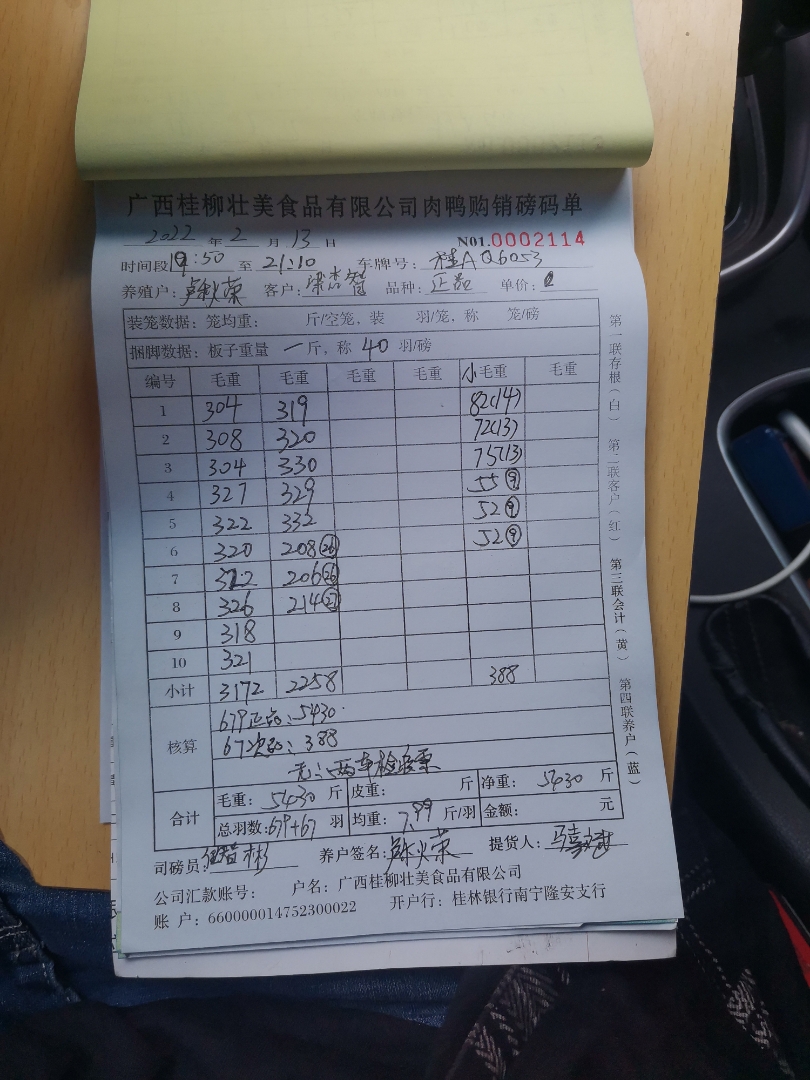 广西桂柳壮美食品有限公司肉鸭购销磅码单
2022 年 2 月 13 日 N01.0002114
时间段 19:50 至 21:10 车牌号: 桂AQ6053
养殖户: 卢秋荣 客户: 品种: 正品 单价:
装笼数据: 笼均重: 斤/空笼, 装 羽/笼, 称 笼/磅
捆脚数据: 板子重量 一 斤, 称 40 羽/磅
编号 毛重 毛重 毛重 毛重 小毛重 毛重
1 304 319 82(14)
2 308 320 72(13)
3 304 330 75(13)
4 327 329 55(9)
5 322 332 52(9)
6 320 208(26) 52(9)
7 322 206(26)
8 326 214(27)
9 318
10 321
小计 3172 2258 388
核算 679正品: 5430
67次品: 388
无 两车检疫票
合计 毛重: 5430 斤 皮重: 斤 净重: 5430 斤
总羽数: 679+67 羽 均重: 7.99 斤/羽 金额: 元
司磅员: 养户签名: 卢秋荣 提货人:
公司汇款账号: 户名: 广西桂柳壮美食品有限公司
账 户: 660000014752300022 开户行: 桂林银行南宁隆安支行
第一联存根(白) 第二联客户(红) 第三联会计(黄) 第四联养户(蓝)